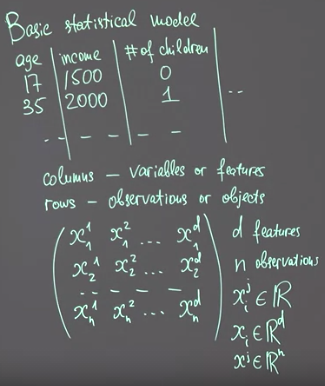 Basic statistical model
age | income | # of children |
17 | 1500 | 0 |
35 | 2000 | 1 | ..
.. - - - -
columns – variables or features
rows – observations or objects
x₁¹ x₁² ... x₁ᵈ
x₂¹ x₂² ... x₂ᵈ
.. - - - -
xₙ¹ xₙ² ... xₙᵈ
d features
n observations
xᵢʲ ∈ ℝ
xᵢ ∈ ℝᵈ
xʲ ∈ ℝⁿ